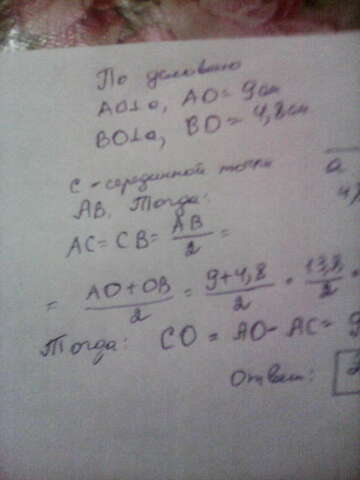 По условию
AO⊥a, AO = 9см
BO⊥a, BO = 4,8см
C - серединной точки
AB. Тогда:
AC = CB = AB/2 =
= AO+OB/2 = 9+4,8/2 = 13,8/2
Тогда: CO = AO - AC = 9
Ответ: 2
a
4